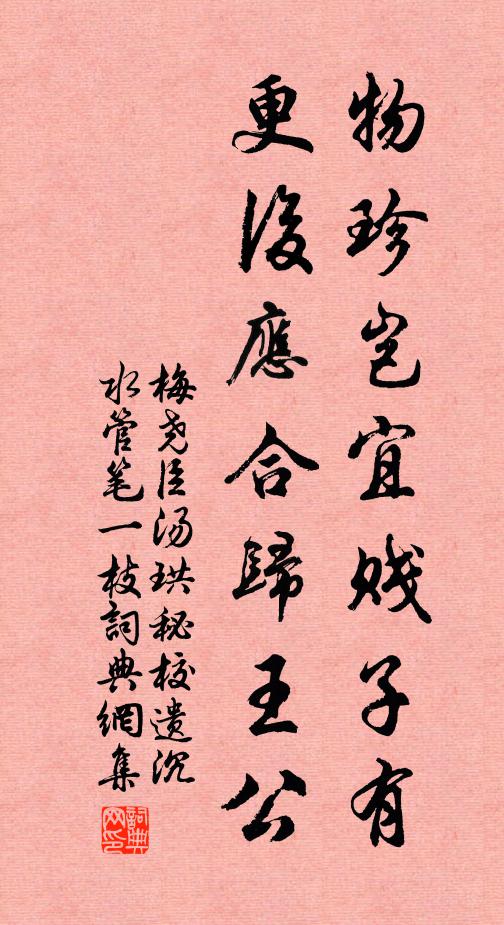 物珍岂宜贱子有
更後應合歸王公
梅尧臣汤珙秘校遗沉
水管笔一枝詞典網集
詞典
网印